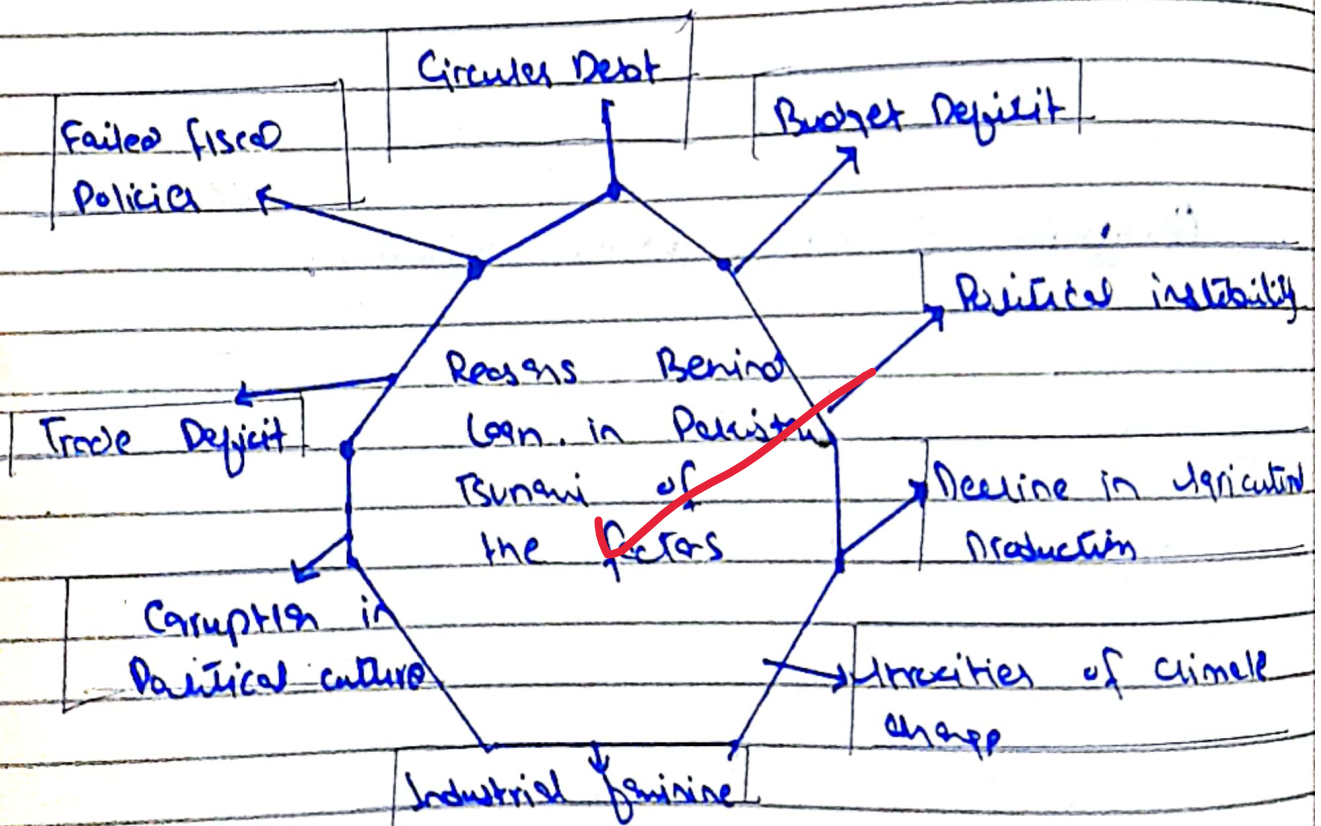 Circuler Debt
Failed fiscal
Policies
Budget Deficit
Political instibility
Reasons Behind
Loan. in Pakistan
Tsunami of
the factors
Trade Deficit
Decline in Agricultural
Production
Corruption in
Political culture
Atrocities of climate
change
Industrial faminine